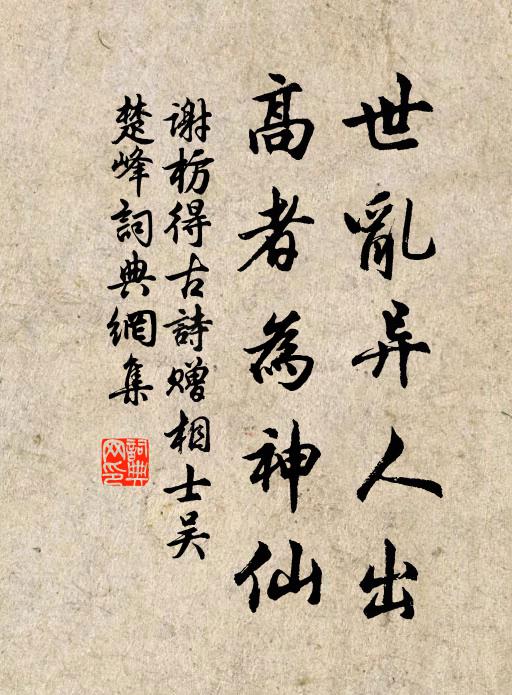 世亂异人出
高者為神仙
謝枋得古詩贈相士吴
楚峰詞典網集
詞典网印